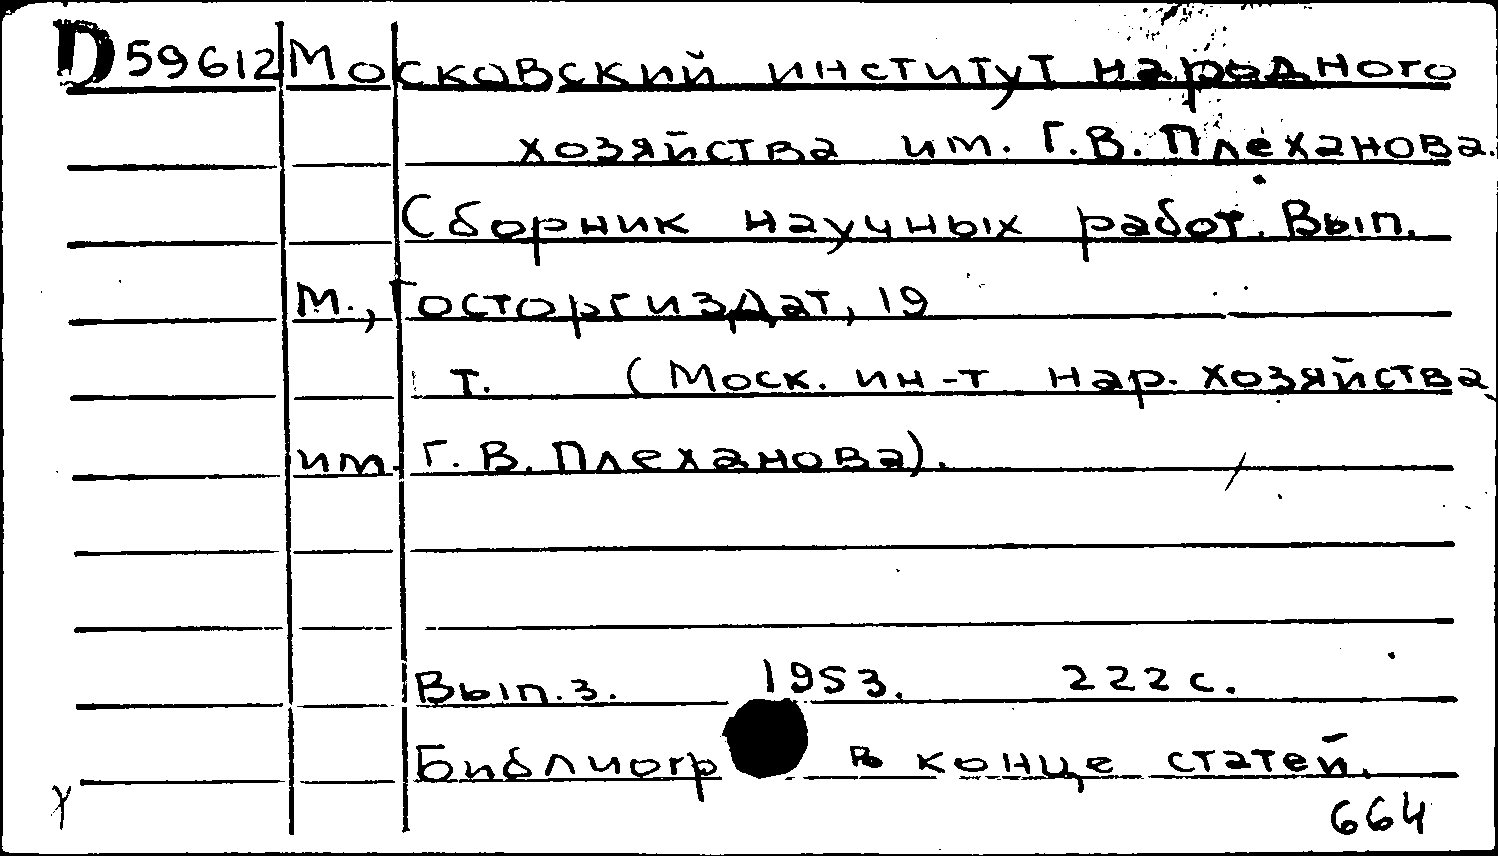 D59612 Московский институт народного
хозяйства им. Г.В. Плеханова.
Сборник научных работ. Вып.
М., Госторгиздат, 19
т. (Моск. ин-т нар. хозяйства
им. Г.В. Плеханова).
Вып.3. 1953. 222с.
Библиогр в конце статей.
664